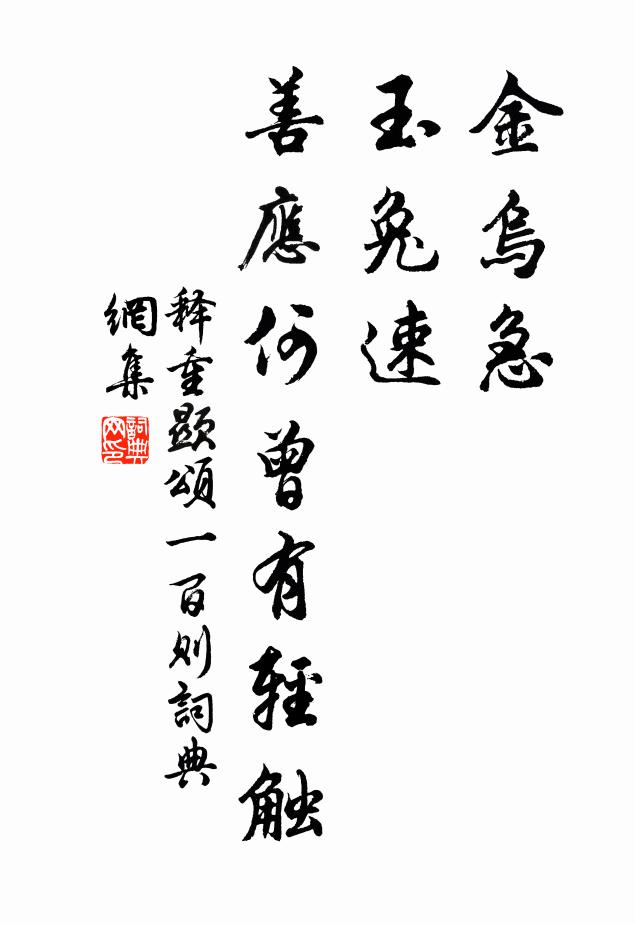 金烏急
玉兔速
善應何曾有輕触
释重顯頌一百则詞典
網集
詞典
网印